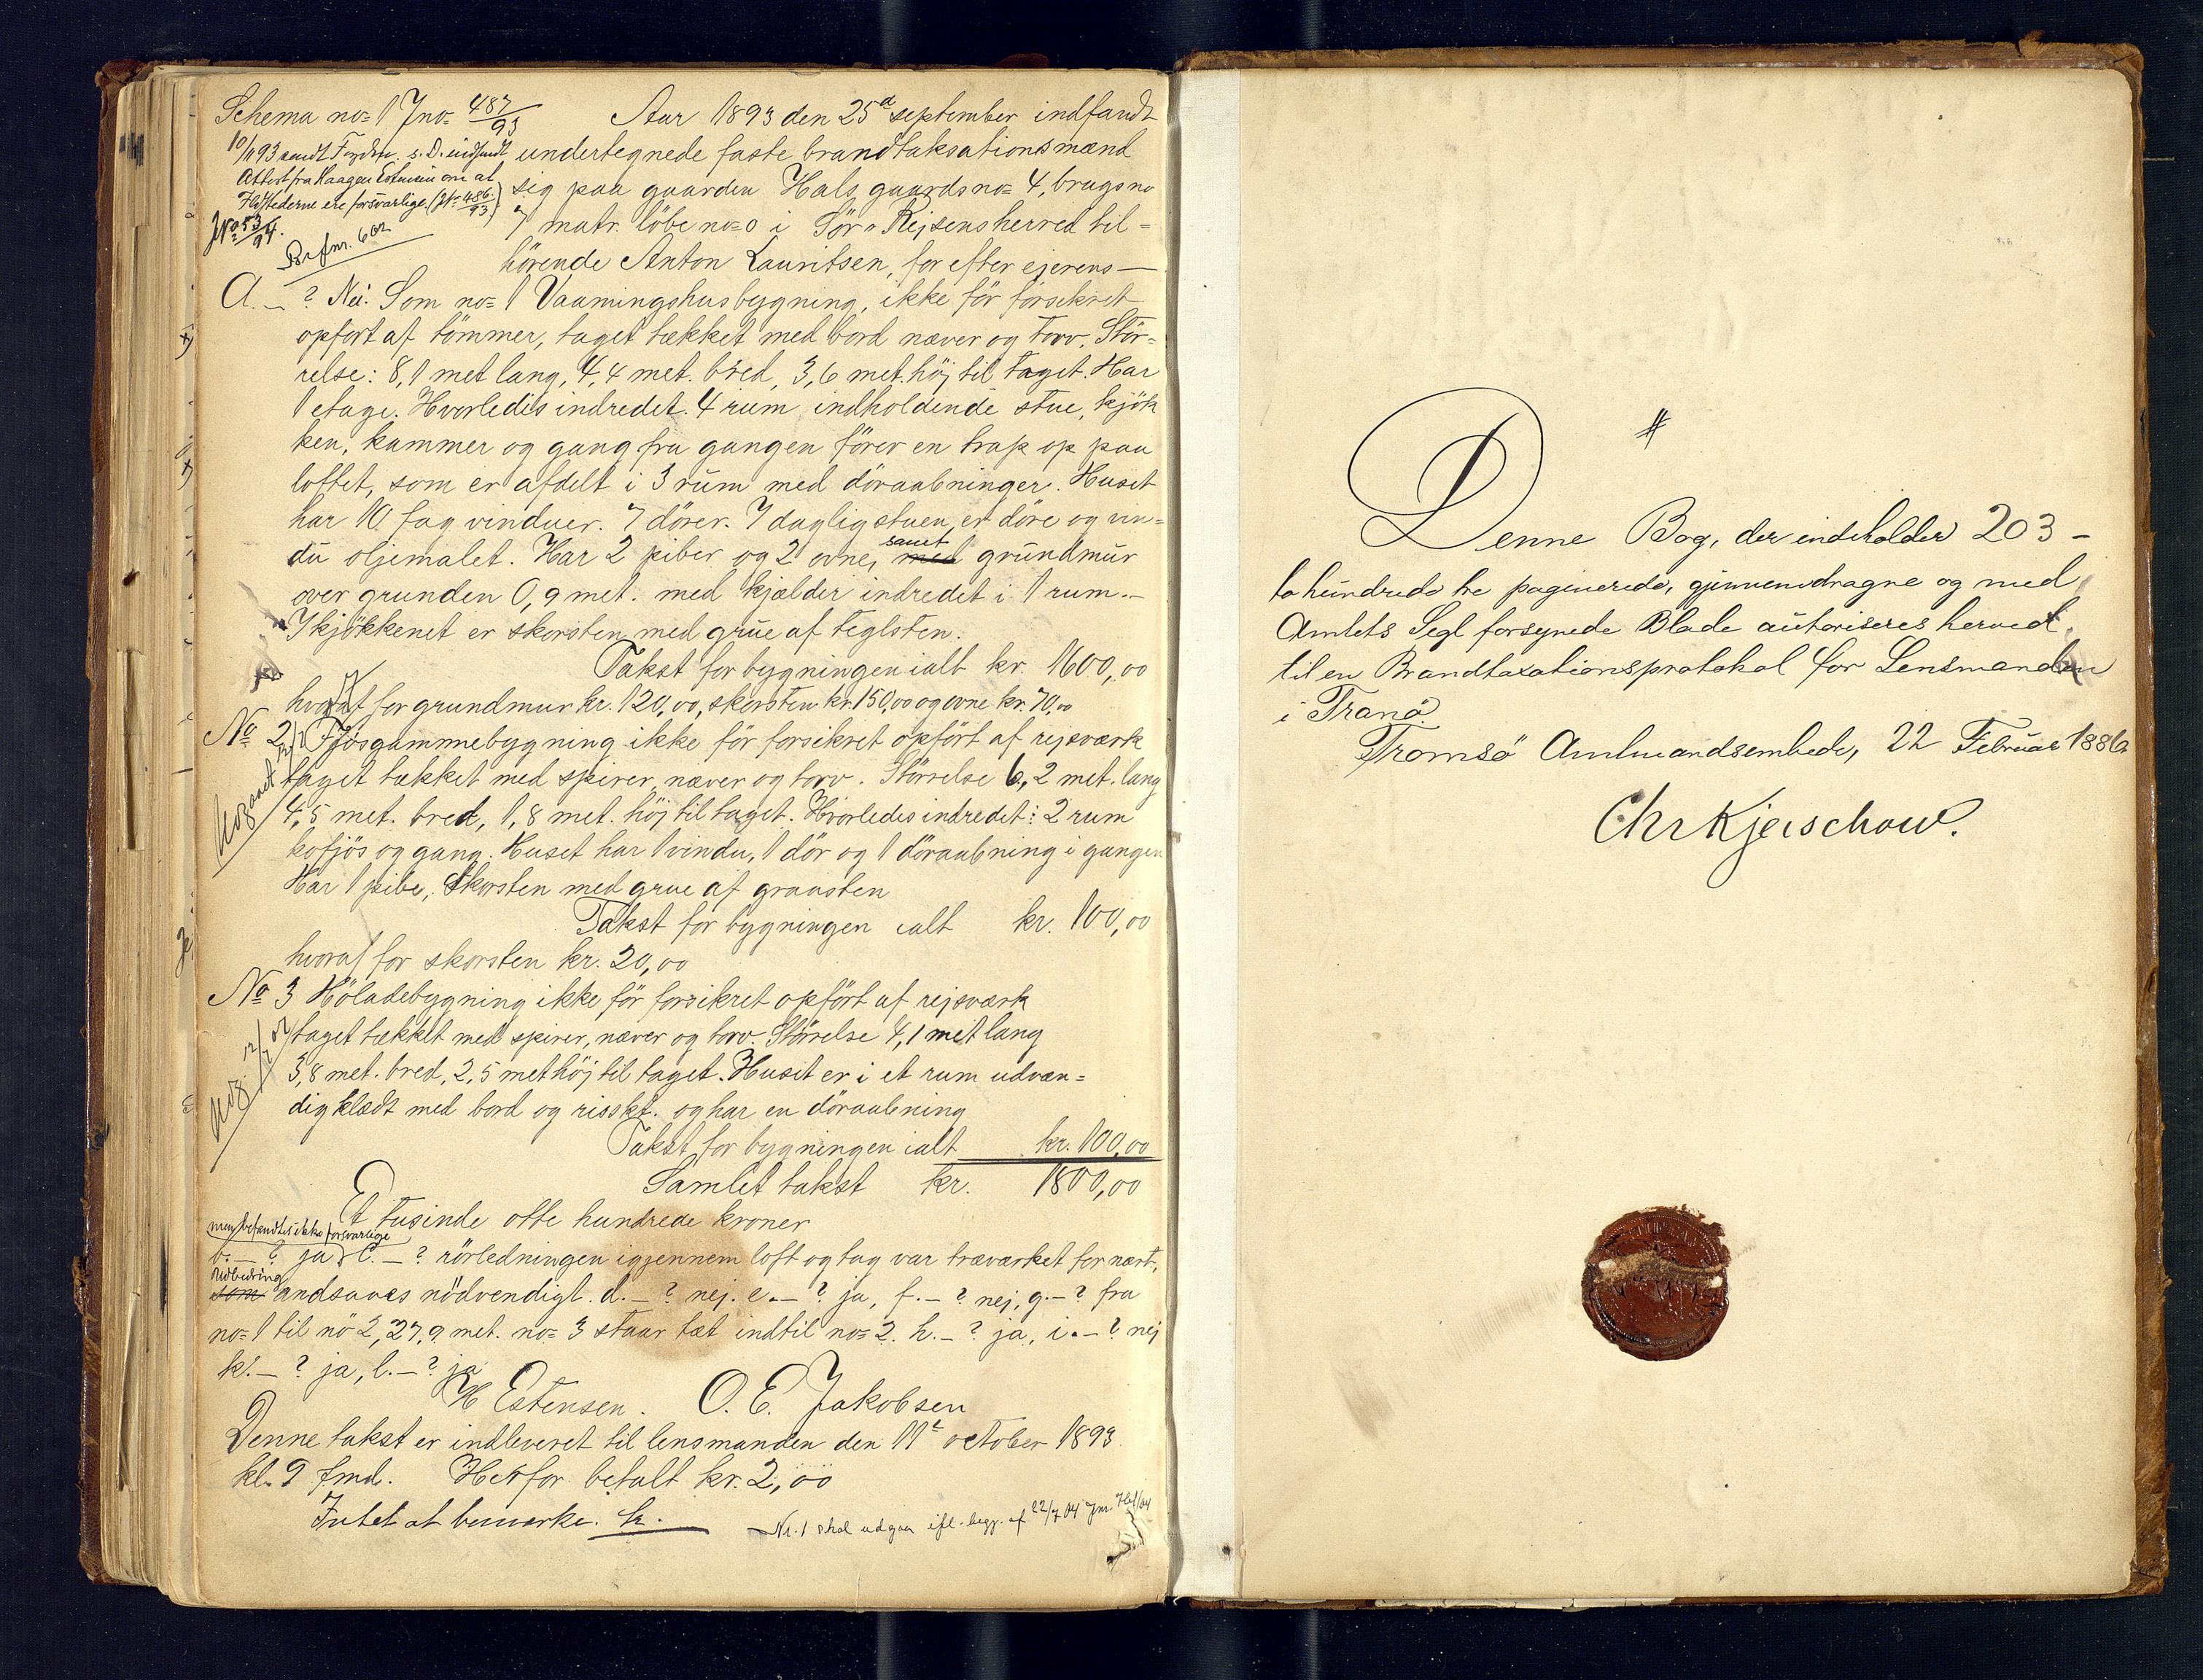 Schema no= 1 Jno= 487/93
Aar 1893 den 25d september indfandt
10/11 93 sendt Fogden. s. D. indsendt
undertegnede faste brandtaksationsmænd
Attest fra Haagen Estensen om at
sig paa gaarden Hals gaardsno= 4, brugsno
Ildstederne ere forsvarlige (JNo 486/93)
7 matr. löbeno=0 i Sör-Rejsensherred til=
JNo 53/94.
hörende Anton Lauritsen, for efter ejerens —
Brfnr. 602
A. — ? Nei. Som no= 1 Vaaningshusbygning, ikke för forsikret
opfört af tömmer, taget tækket med bord næver og torv. Stör=
relse: 8,1 met lang, 4,4 met. bred, 3,6 met. höj til taget. Har
1 etage. Hvorledes indredet. 4 rum indholdende stue, kjök
ken, kammer og gang fra gangen förer en trap op paa
loftet, som er afdelt i 3 rum med döraabninger. Huset
har 10 fag vinduer. 7 dörer. I dagligstuen er döre og vin=
du oljemalet. Har 2 piber og 2 ovne, med samt grundmur
over grunden 0,9 met. med kjælder indredet i 1 rum. —
I kjökkenet er skorsten med grue af teglsten.
Takst for bygningen ialt kr. 1600,00
hvoraf for grundmur kr. 120,00, skorsten kr. 150,00 og ovne kr. 70,00
No 2. Fjösgammebygning ikke för forsikret opfört af rejsværk
taget tækket med spirer, næver og torv. Störrelse 6,2 met. lang
Udgaaet
4,5 met. bred, 1,8 met. höj til taget. Hvorledes indredet: 2 rum
kofjös og gang. Huset har 1 vindu, 1 dör og 1 döraabning i gangen
Har 1 pibe, Skorsten med grue af graasten
Takst for bygningen ialt kr. 100,00
hvoraf for skorsten kr. 20,00
No 3 Höladebygning ikke för forsikret opfört af rejsværk
taget tækket med spirer, næver og torv. Störrelse 4,1 met lang
3,8 met. bred, 2,5 met höj til taget. Huset er i et rum udvæn=
Udg.
dig klædt med bord og risskt. og har en döraabning
Takst for bygningen ialt kr. 100,00
Samlet takst kr. 1800,00
Et tusinde otte hundrede kroner
men befandtes ikke forsvarlige
b. — ? ja, C. — ? rörledningen igjennem loft og tag var træværket for nært,
udbedring
som andsaaes nödvendigt. d. — ? nej. e. — ? ja, f. — ? nej, g. — ? fra
no= 1 til no 2, 27,9 met. no= 3 staar tæt indtil no= 2. h. — ? ja, i. — ? nej
k. — ? ja, l. — ? ja
H Estensen. O. E. Jakobsen
Denne takst er indleveret til lensmanden den 11te october 1893
kl. 9 fmd. Herfor betalt kr. 2,00
Intet at bemærke.
Nr. 1 skal udgaa ifl. begj. af 22/7 04
Denne Bog, der indeholder 203 –
to hundrede tre paginerede, gjennemdragne og med
Amtets Segl forsynede Blade autoriseres herved
til en Brandtaxationsprotokol for Lensmanden
i Tranö.
Tromsö Amtmandsembede, 22 Februar 1886
Chr Kjerschow.